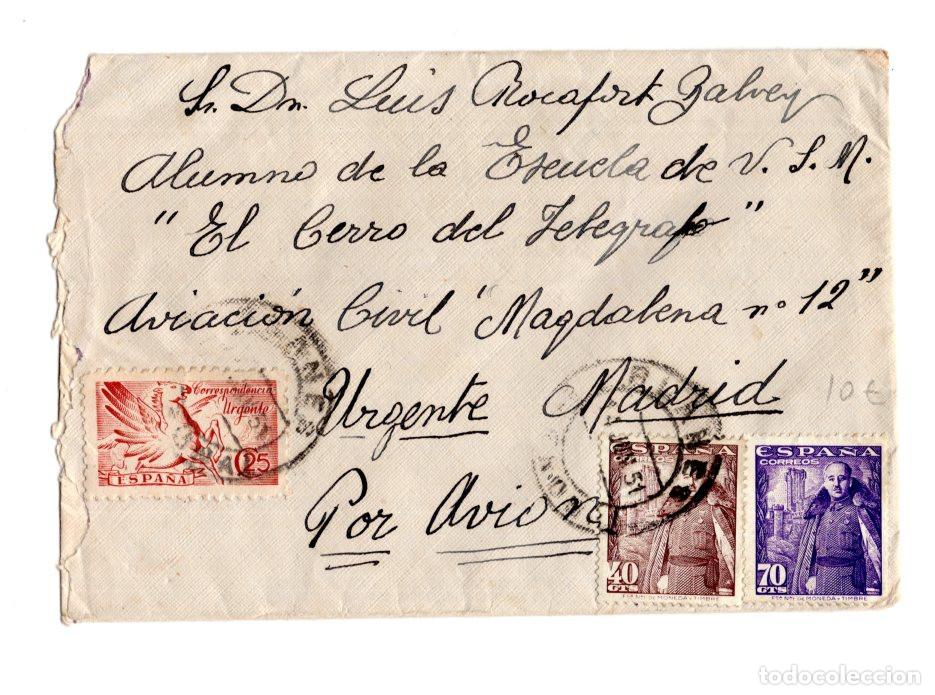 Sr. Dn. Luis Rocafort Galvey
Alumno de la Escuela de V. S. M.
"El Cerro del Telegrafo"
Aviación Civil "Magdalena nº 12"
Urgente Madrid
Por Avion
10 €
Correspondencia
Urgente
25
ESPAÑA
ESPAÑA
CORREOS
40
CTS
ESPAÑA
CORREOS
70
CTS
JUN 51
todocoleccion